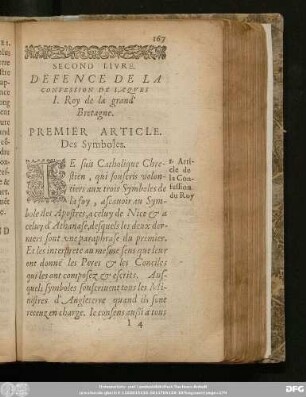 167
SECOND LIVRE.
DEFENCE DE LA
CONFESSION DE IAQUES
I. Roy de la grand'
Bretagne.
PREMIER ARTICLE.
Des Symboles.
IE suis Catholique Chre-
stien, qui souscris volon-
tiers aux trois Symboles de
la foy, asçauoir au Sym-
bole des Apostres, a celuy de Nice & a
celuy d'Athanase, desquels les deux der-
niers sont vne paraphrase du premier.
Et les interprete au mesme sens que leur
ont donné les Peres & les Conciles
qui les ont composez & escrits. Aus-
quels symboles souscriuent tous les Mi-
nistres d'Angleterre quand ils sont
receuz en charge. Ie condamne aussi
I 4
1. Arti-
cle de
la Con-
fession
du Roy
DFG